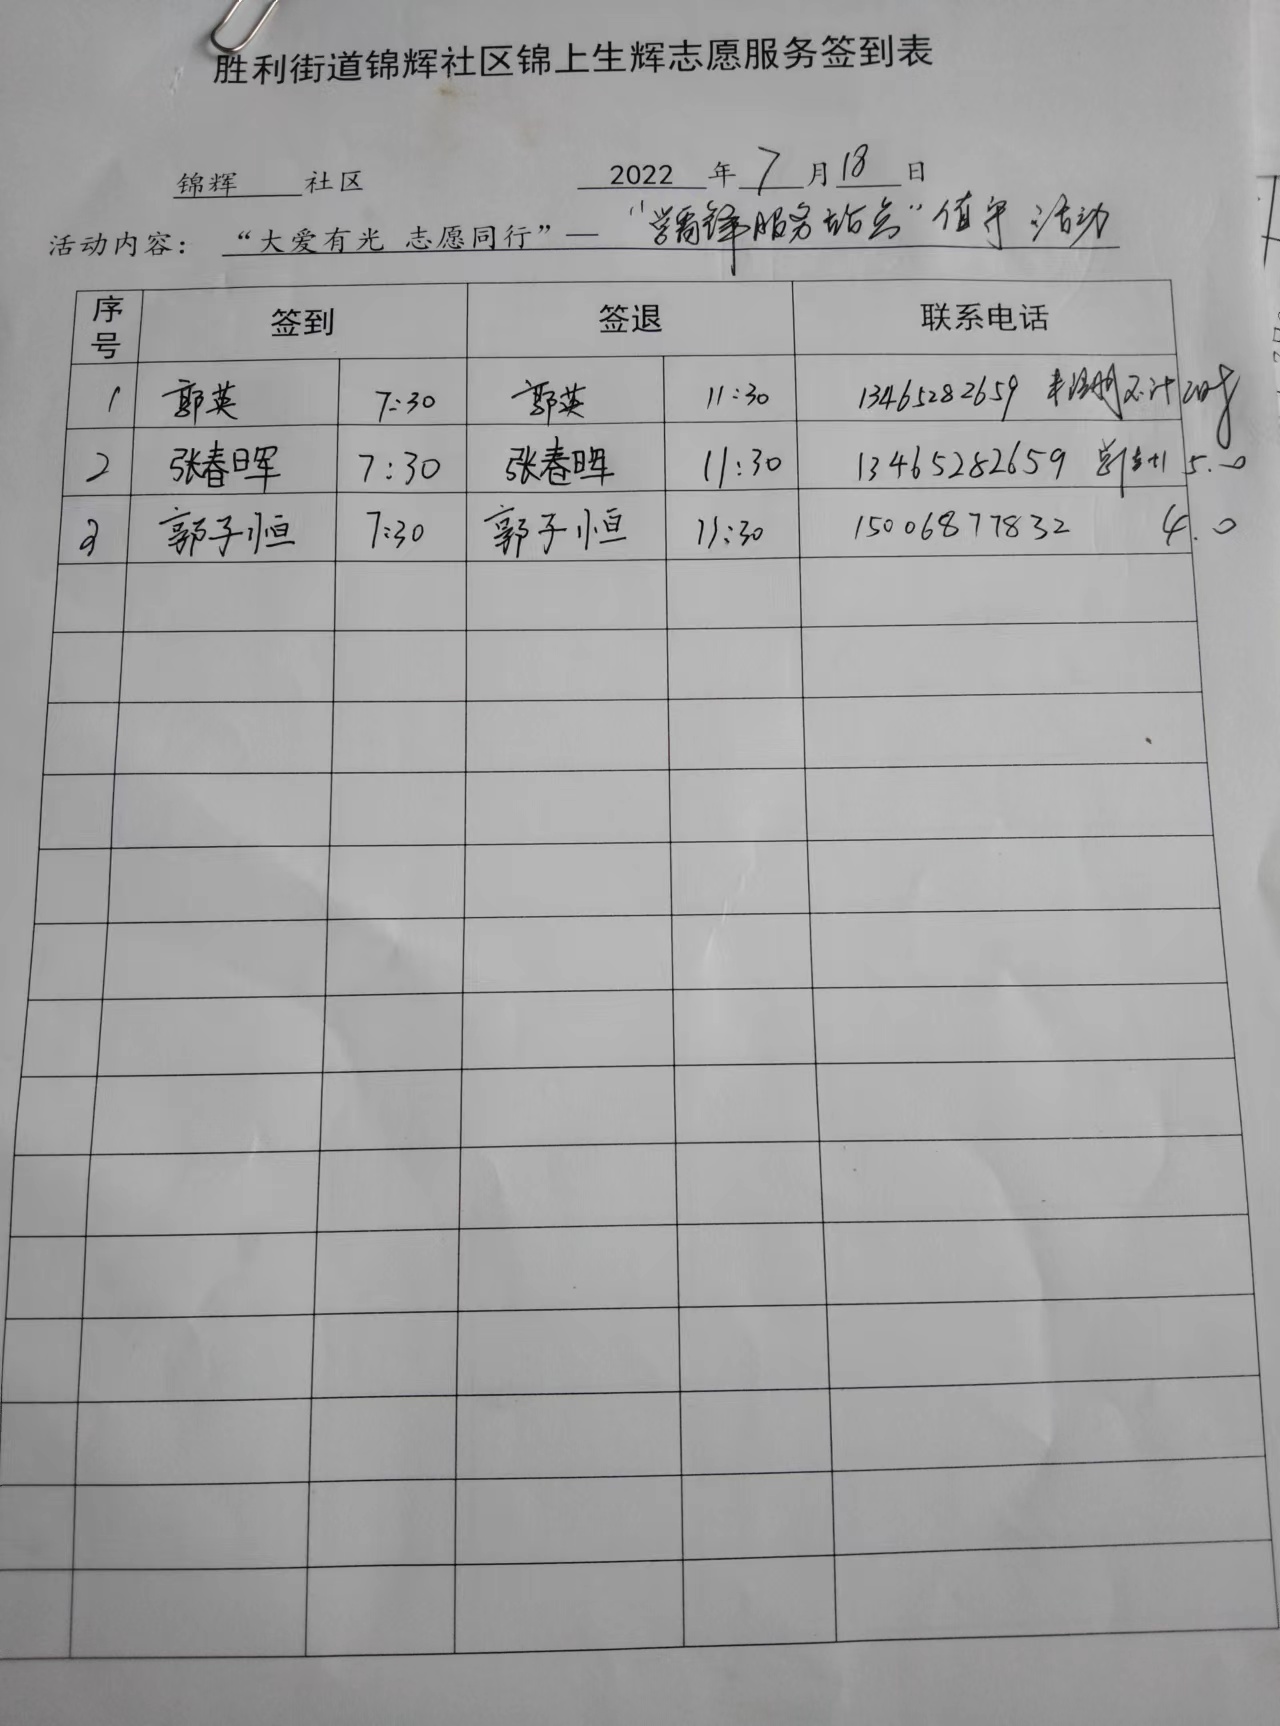 胜利街道锦辉社区锦上生辉志愿服务签到表
锦辉 社区 2022 年 7 月 18 日
活动内容： “大爱有光 志愿同行”— “学雷锋服务站点”值守 活动
序号 签到 签退 联系电话
1 郭英 7:30 郭英 11:30 13465282659 未注册不计时
2 张春晖 7:30 张春晖 11:30 13465282659 5.0
3 郭子恒 7:30 郭子恒 11:30 15006877832 4.0